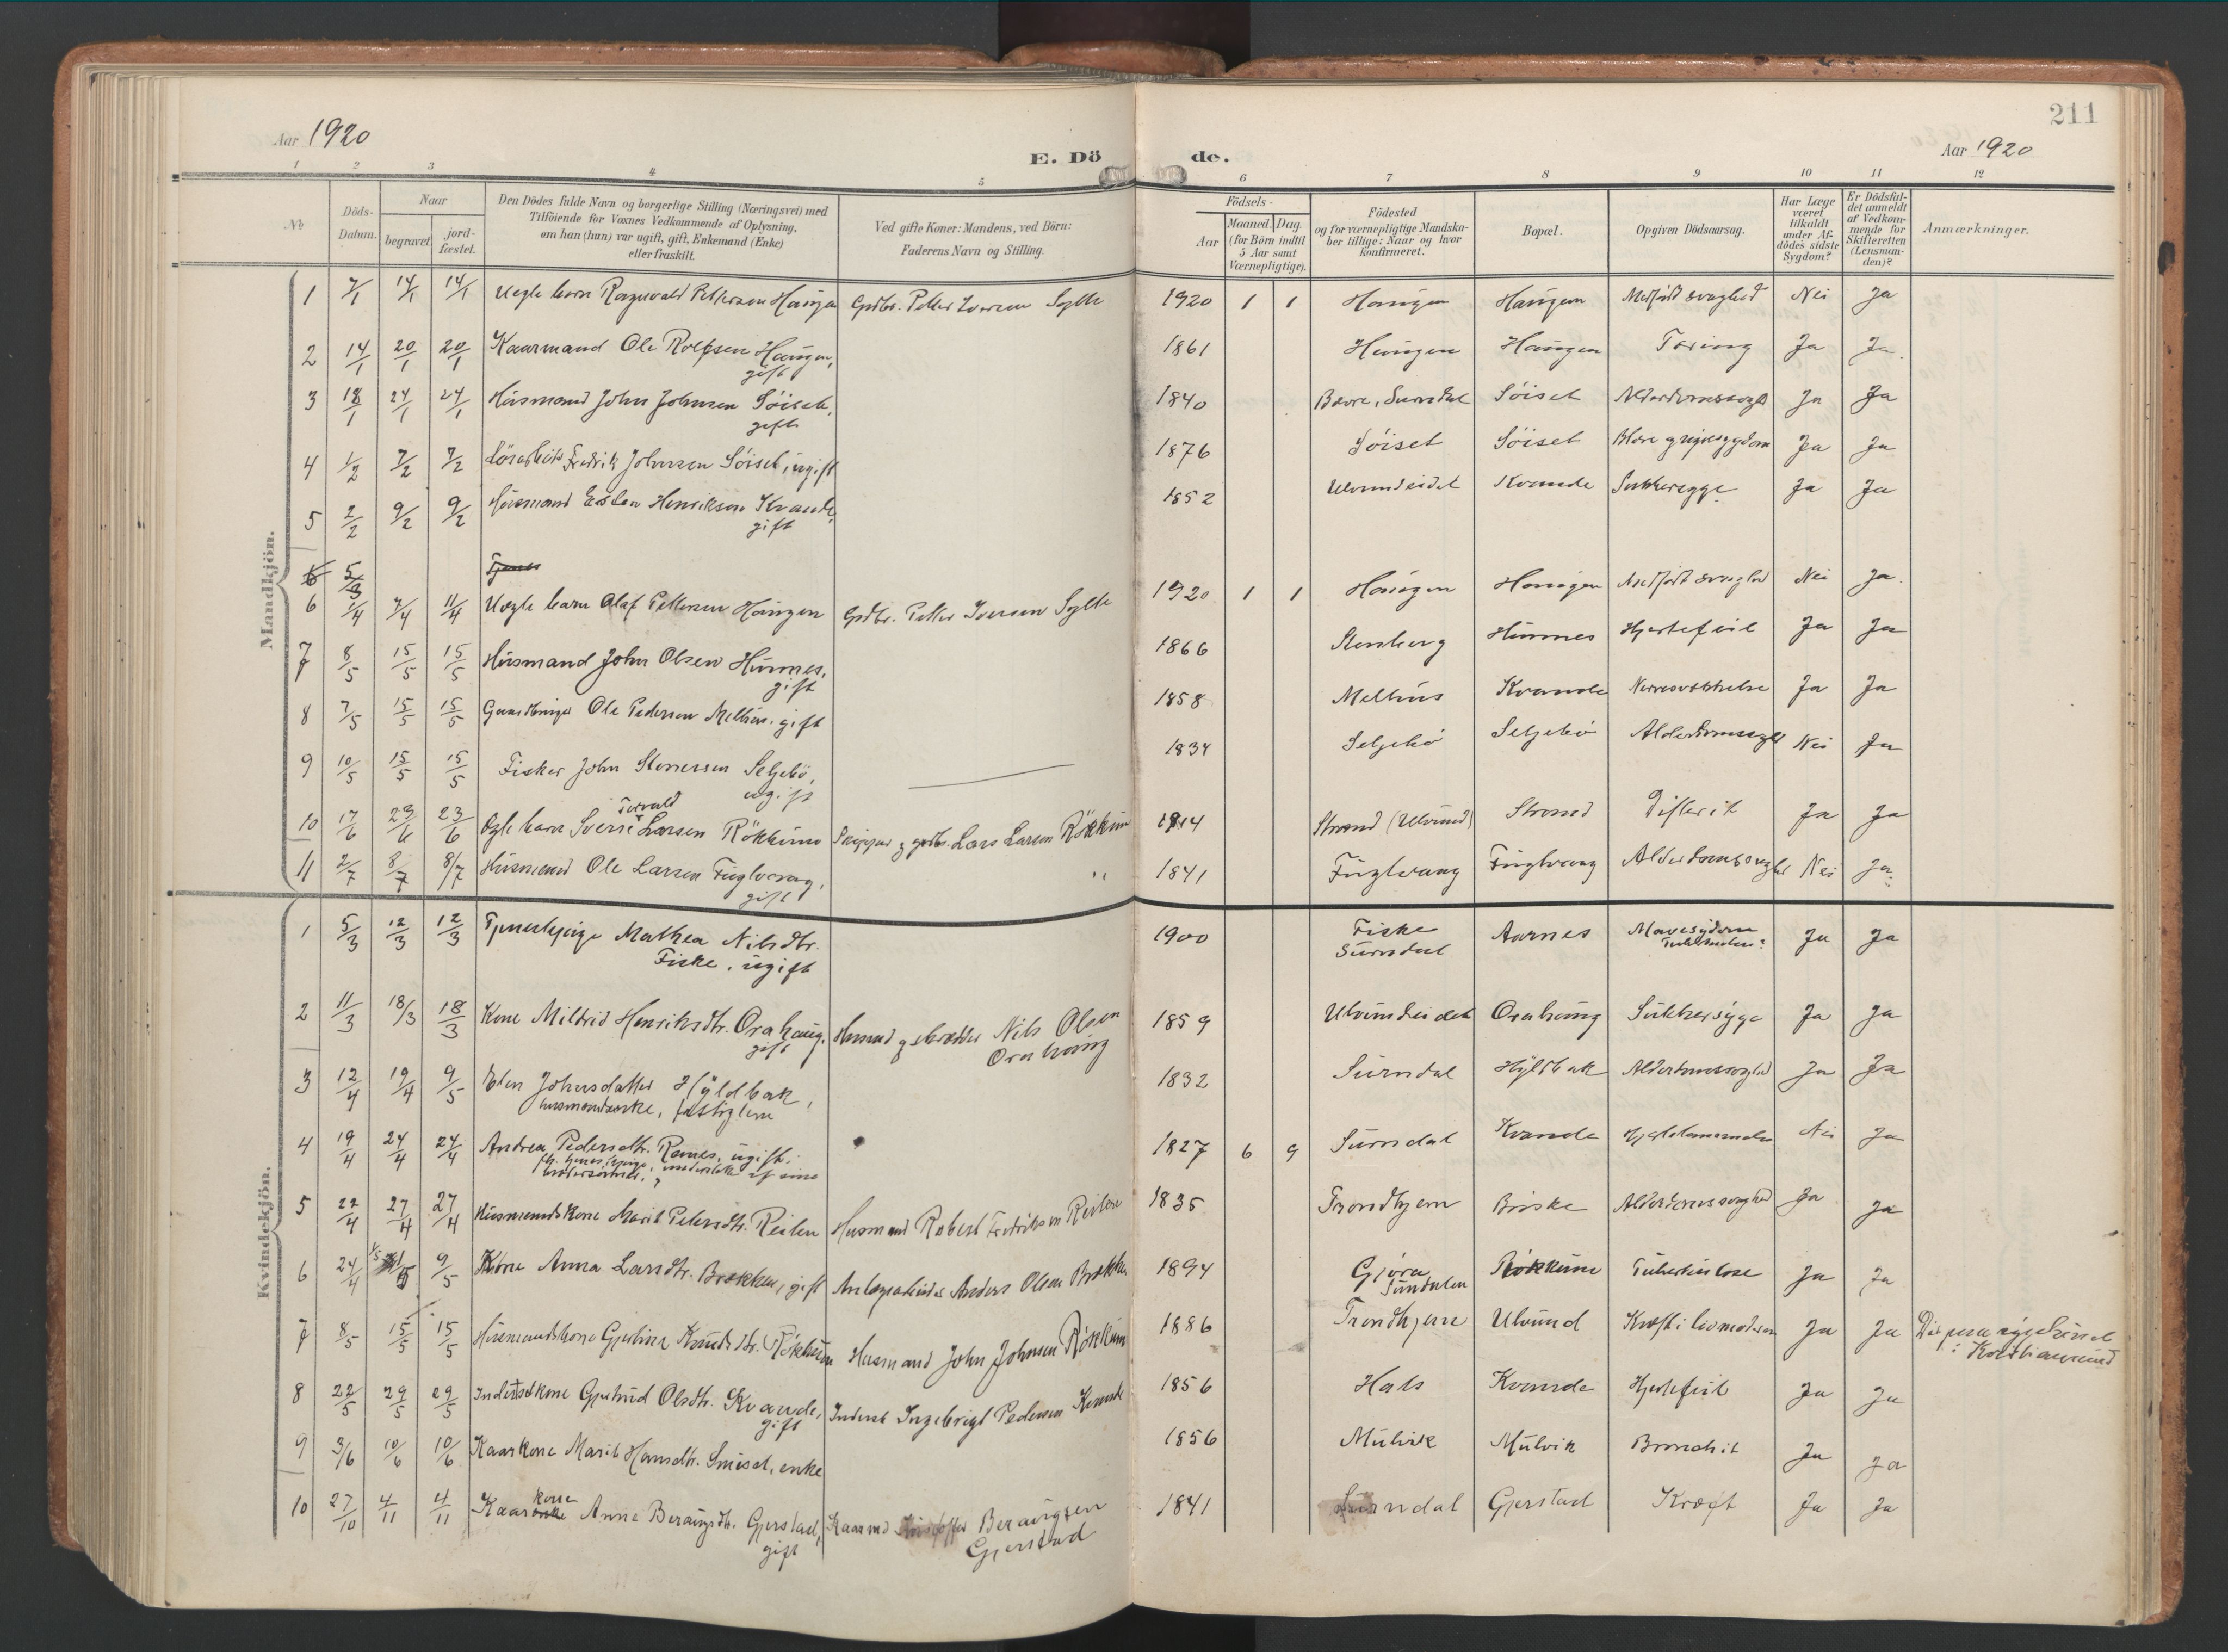 Aar 1920
E. Döde.
211
Aar 1920
1 2 3 4 5 6 7 8 9 10 11 12
No.
Döds-Datum.
Naar
begravet.
jord-fæstet.
Den Dödes fulde Navn og borgerlige Stilling (Næringsvei) med
Tilföiende for Voxnes Vedkommende af Oplysning,
om han (hun) var ugift, gift, Enkemand (Enke)
eller fraskilt.
Ved gifte Koner: Mandens, ved Börn:
Faderens Navn og Stilling.
Födsels-
Aar
Maaned. Dag.
(for Börn indtil
5 Aar samt
Værnepligtige).
Födested
og for værnepligtige Mandska-
ber tillige: Naar og hvor
konfirmeret.
Bopæl.
Opgiven Dödsaarsag.
Har Læge
været
tilkaldt
under Af-
dödes sidste
Sygdom?
Er Dödsfal-
det anmeldt
af Vedkom-
mende for
Skifteretten
(Lensman-
den)?
Anmærkninger.
Mandkjön.
1 7/1 14/1 14/1 Uegte barn Ragnvald Pettersen Haugen Grdbr. Petter Iversen Sylte 1920 1 1 Haugen Haugen Medfödt svaghed Nei Ja
2 14/1 20/1 20/1 Kaarmand Ole Rolfsen Haugen, 1861 Haugen Haugen Tæring Ja Ja.
gift
3 18/1 24/1 24/1 Husmand John Johnsen Söiset, 1840 Bævre, Surndal Söiset Ja Ja
gift
4 1/2 7/2 7/2 Fredrik Johnsen Söiset, ugift 1876 Söiset Söiset Ja Ja
5 2/2 9/2 9/2 Husmand Esten Henriksen Kvande, 1852 Ulvundeidet Kvande Sukkersyge Ja Ja
gift
6 5/3 Tjener
6 1/4 7/4 11/4 Uegte barn Olaf Pettersen Haugen Grdbr. Petter Iversen Sylte 1920 1 1 Haugen Haugen Medfödt svaghed Nei Ja.
7 8/5 15/5 15/5 Husmand John Olsen Hunnes, 1866 Stenberg Hunnes Hjertefeil Ja Ja
gift
8 7/5 15/5 15/5 Ole Pedersen Melhus. gift 1858 Melhus Kvande Ja Ja
9 10/5 15/5 15/5 Fisker John Stenersen Seljebö, 1834 Seljebö Seljebö Nei Ja
ugift
10 17/6 23/6 23/6 Egte barn Sverre Torvald Larsen Rökkum Skipper og grdbr. Lars Larsen Rökkum 1914 Strand (Ulvund) Strand Difterit Ja Ja
11 2/7 8/7 8/7 Husmand Ole Larsen Fuglvaag, 1841 Fuglvaag Fuglvaag Alderdomssvaghed Nei Ja
gift
Kvindekjön.
1 5/3 12/3 12/3 Tjenestepige Mathea Nilsdtr. 1900 Fiske Aarnes Mavesygdom Ja Ja
Fiske, ugift Surndal Tuberkulose?
2 11/3 18/3 18/3 Kone Mildrid Henriksdtr. Orahaug, Husmand og skrædder Nils Olsen 1859 Ulvundeidet Orahaug Sukkersyge Ja Ja
gift Orahaug
3 12/4 19/4 9/5 Elen Johnsdatter Hyldbak, 1832 Surndal Hyldbak Alderdomssvaghed Ja Ja
husmandsenke, fattiglem
4 19/4 24/4 24/4 Andrea Pedersdtr. Romes, ugift. 1827 6 9 Surndal Kvande Nei Ja
5 22/4 27/4 27/4 Husmandskone Marit Petersdtr. Reiten Husmand Robert Fredriksen Reiten 1835 Trondhjem Bruske Alderdomssvaghed Ja Ja
6 24/4 1/5 9/5 Kone Anna Larsdtr. Brokken, gift Anlægsarbeider Anders Olsen Brokken 1894 Gjöra Rökkum Tuberkulose Ja Ja
Sundalen
7 8/5 15/5 15/5 Husmandskone Gjertine Knudsdtr. Rökkum Husmand John Johnsen Rökkum 1886 Trondhjem Ulvund Kræft i livmoderen Ja Ja Död paa sygehuset
i Kristiansund
8 22/5 29/5 29/5 Inderstkone Gjertrud Olsdtr. Kvande, Inderst Ingebrigt Pedersen Kvande 1856 Hals Kvande Hjertefeil Ja Ja
gift
9 3/6 10/6 10/6 Kaarkone Marit Hansdtr. Smiset, enke 1856 Mulvik Mulvik Bronchit Ja Ja
10 27/10 4/11 4/11 Kaarkone Anne Beraugsdtr. Gjerstad, Kaarmd Kristoffer Beraugsen 1841 Surndal Gjerstad Kræft Ja Ja
gift Gjerstad